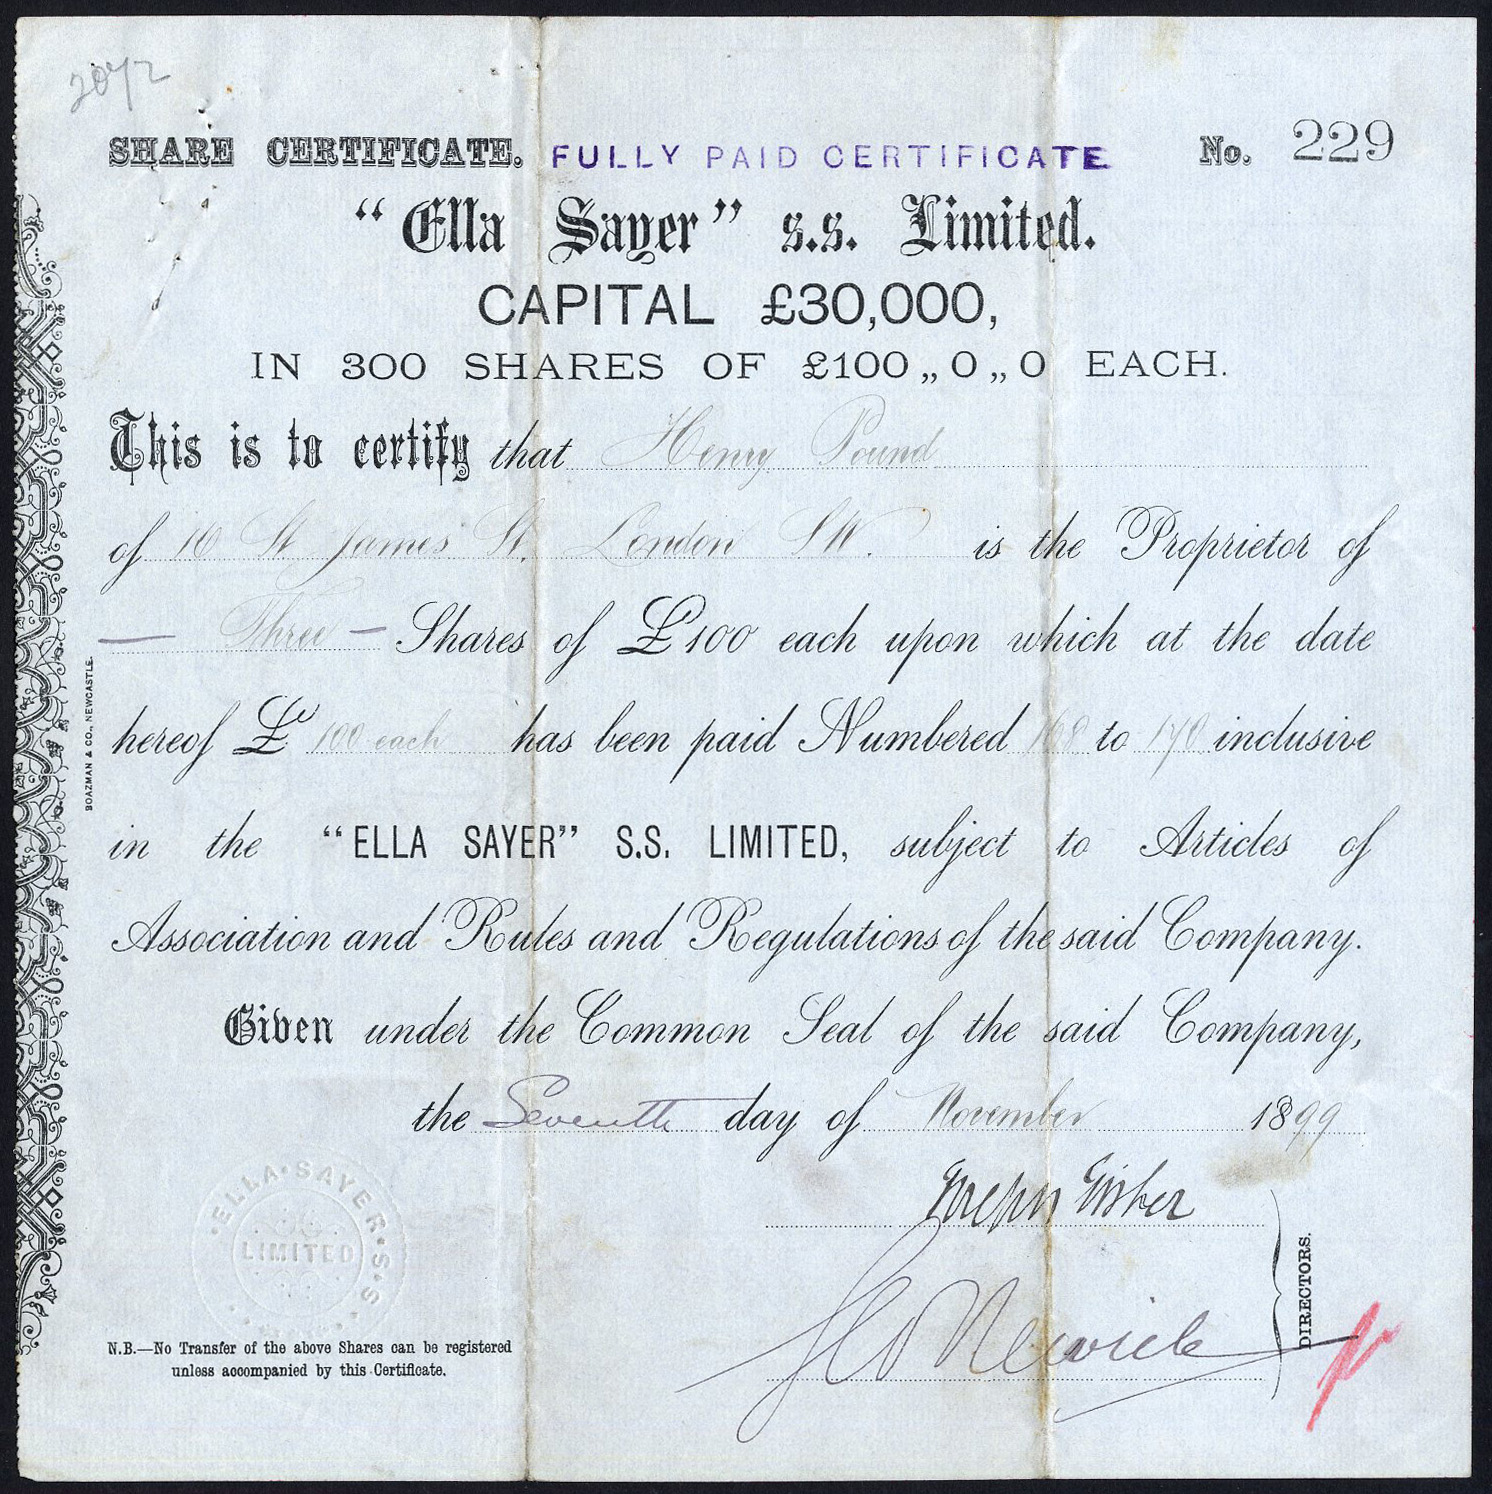 2072
SHARE CERTIFICATE. FULLY PAID CERTIFICATE No. 229
“Ella Sayer” s.s. Limited.
CAPITAL £30,000,
IN 300 SHARES OF £100 „ 0 „ 0 EACH.
This is to certify that Henry Pound
of 10 St James St. London SW. is the Proprietor of
— Three — Shares of £100 each upon which at the date
hereof £ 100 each has been paid Numbered 168 to 170 inclusive
in the “ELLA SAYER” S.S. LIMITED, subject to Articles of
Association and Rules and Regulations of the said Company.
Given under the Common Seal of the said Company,
the Seventh day of November 1899
Joseph Fisher
Newick
DIRECTORS.
ELLA·SAYER·S·S
LIMITED
N.B.—No Transfer of the above Shares can be registered
unless accompanied by this Certificate.
BOAZMAN & CO., NEWCASTLE.